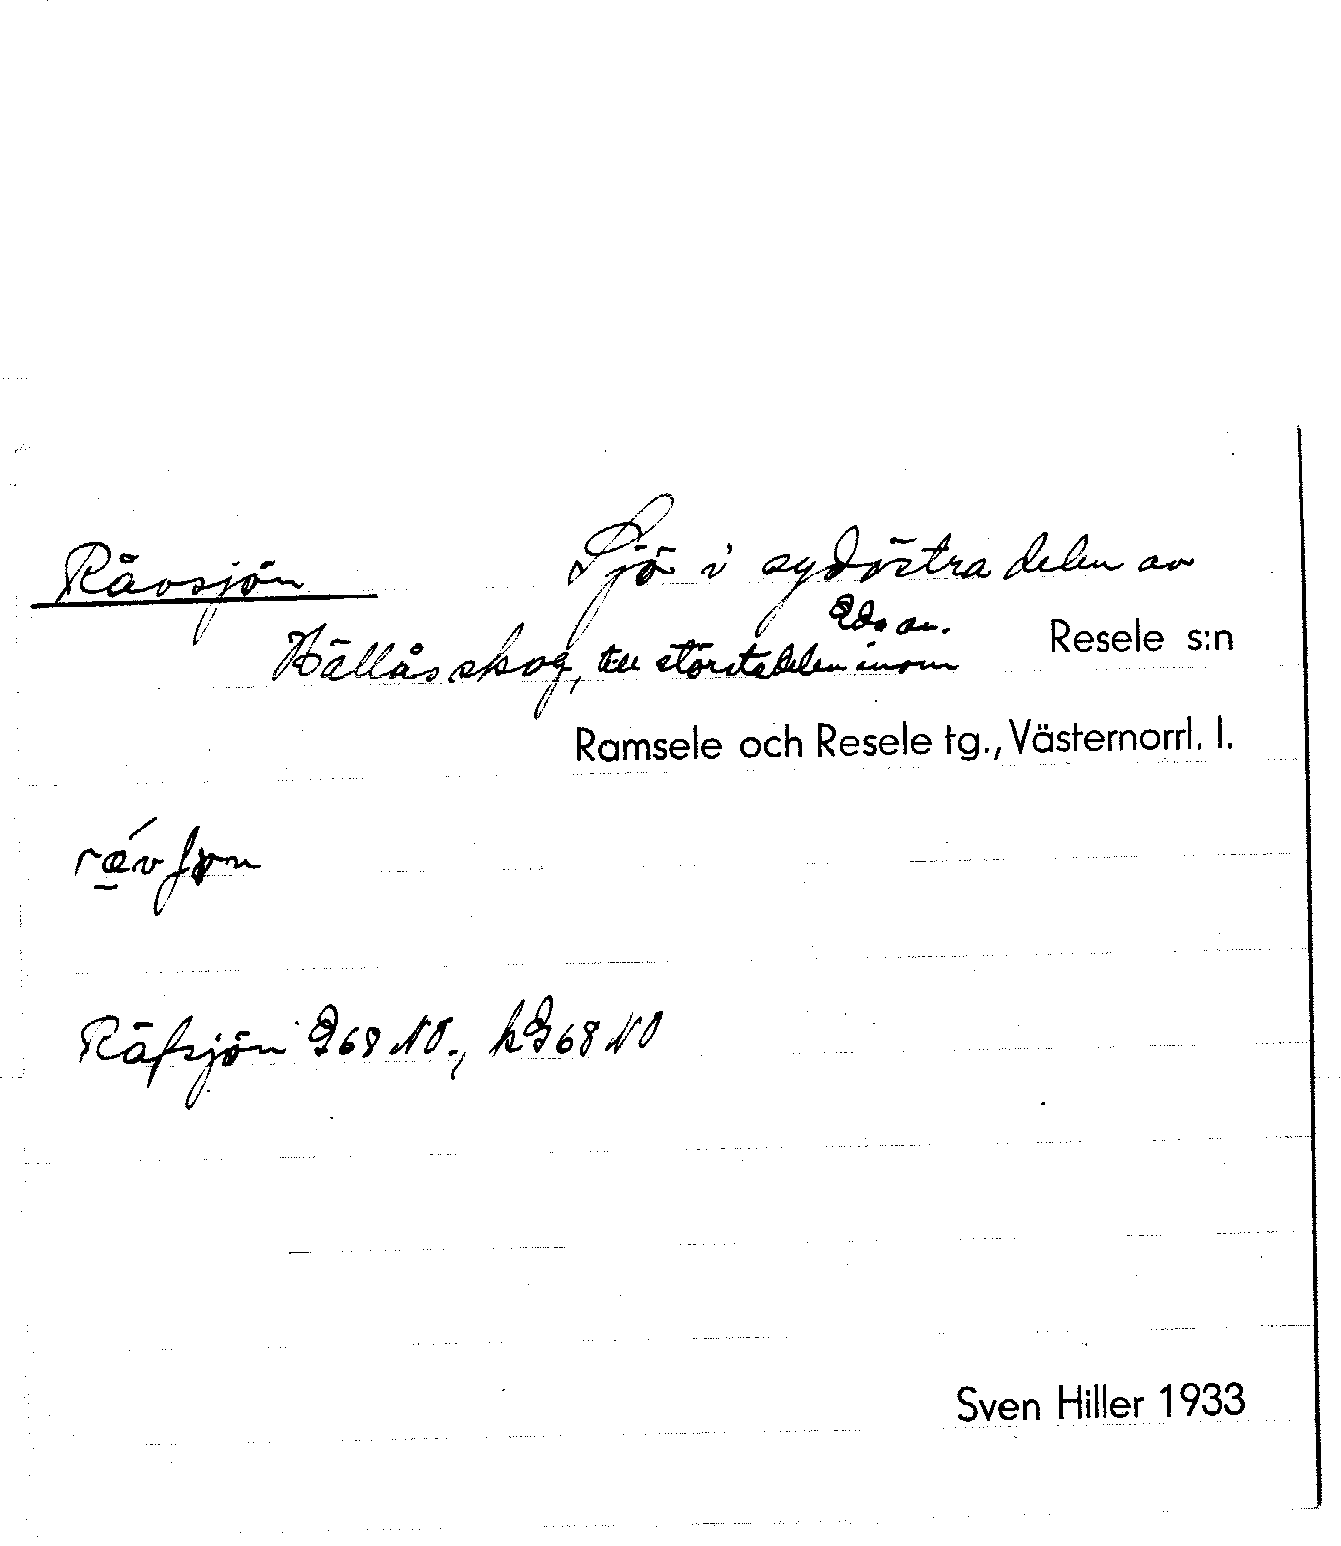 Rävsjön Sjö i sydöstra delen av
Hällås skog, till större delen inom Eds sn. Resele s:n
Ramsele och Resele tg., Västernorrl. l.
Räfsjön G68 NO., hG68 NO
Sven Hiller 1933